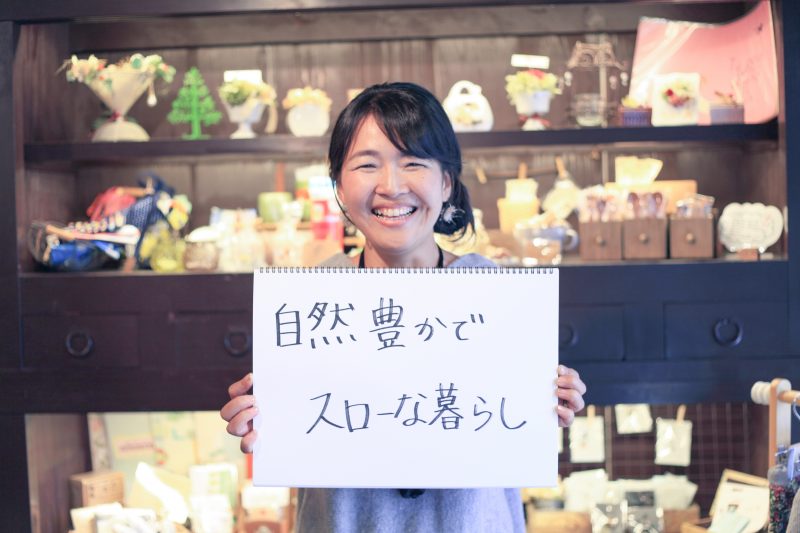 自然豊かで
スローな暮らし